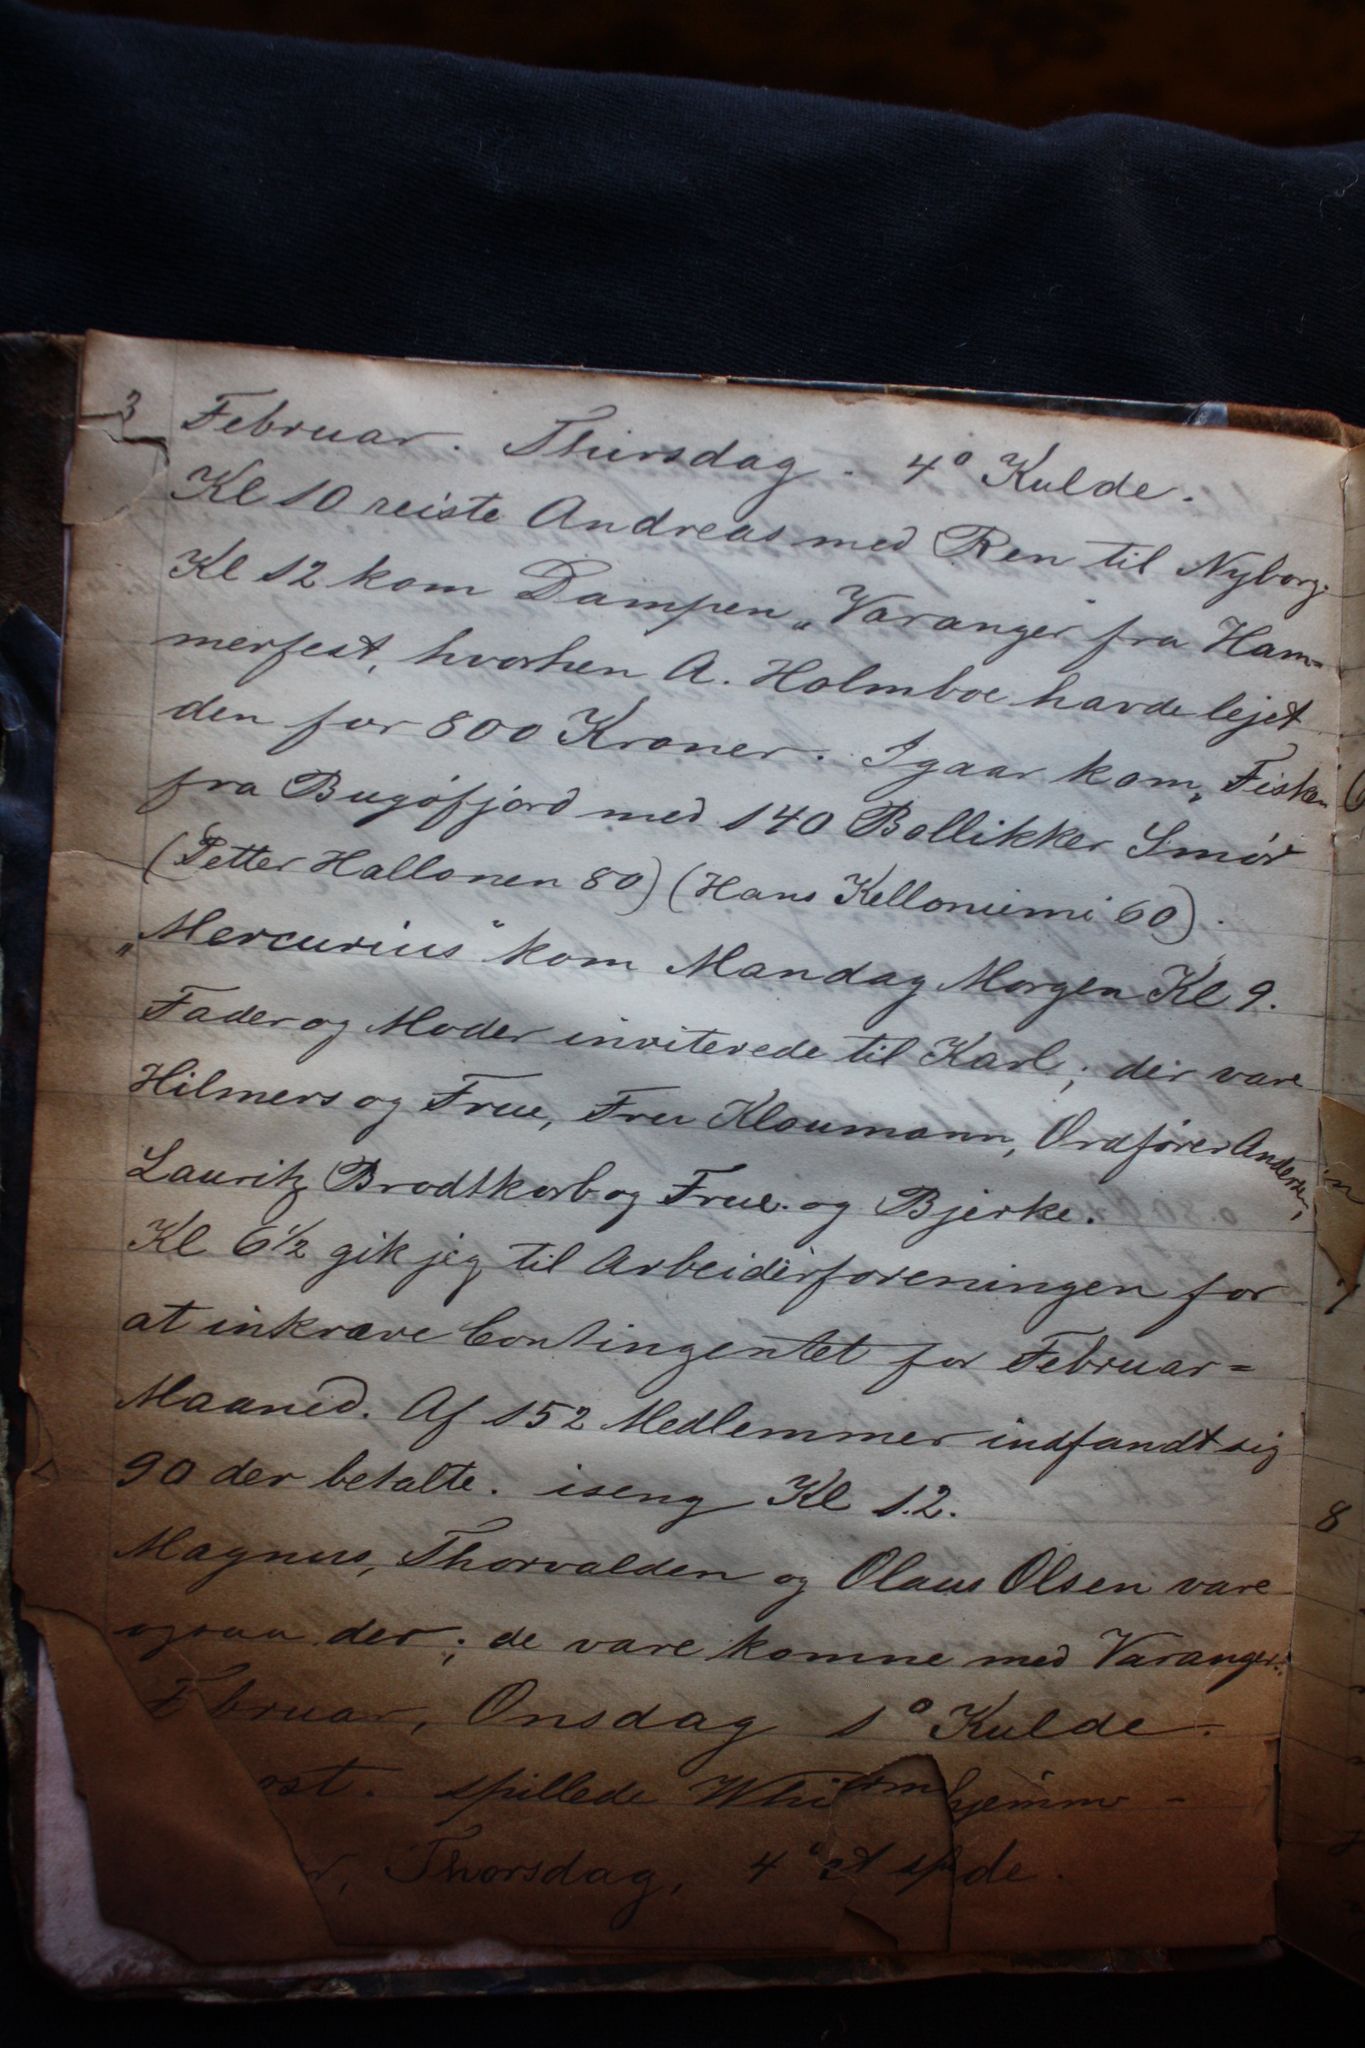 3 Februar. Thirsdag. 4° Kulde.
Kl 10 reiste Andreas med Ren til Nyborg.
Kl 12 kom Dampen „Varanger fra Ham=
merfest, hvorhen A. Holmboe havde lejet
den for 800 Kroner. Igaar kom „Fisken
fra Bugøfjord med 140 Bollikker Smør
(Petter Hallonen 80) (Hans Kelloniemi 60).
„Mercurius" kom Mandag Morgen Kl 9.
Fader og Moder inviterede til Karl; der vare
Hilmers og Frue, Fru Klaumann, Ordfører Andersen,
Lauritz Brodtkorb og Frue. og Bjerke.
Kl 6½ gik jeg til Arbeiderforeningen for
at inkræve Contingentet for Februar=
Maaned. Af 152 Medlemmer indfandt sig
90 der betalte. iseng Kl 12.
Magnus, Thorvalden og Olaus Olsen vare
ogsaa der; de vare komne med Varanger.
Februar, Onsdag 1° Kulde.
spillede hjemme
Thorsdag, 4°
8